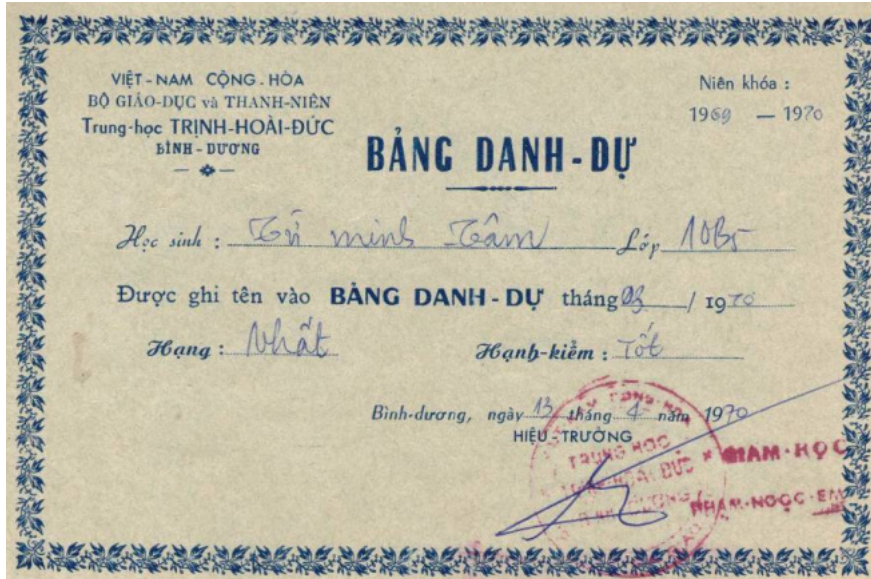 VIỆT-NAM CỘNG-HÒA
BỘ GIÁO-DỤC và THANH-NIÊN
Trung-học TRỊNH-HOÀI-ĐỨC
BÌNH-DƯƠNG
Niên khóa :
1969 — 1970
BẢNG DANH-DỰ
Học sinh : minh Tâm Lớp 10B5
Được ghi tên vào BẢNG DANH-DỰ tháng 03 / 1970
Hạng : Nhất Hạnh-kiểm : Tốt
Bình-dương, ngày 13 tháng 4 năm 1970
HIỆU-TRƯỞNG
TRUNG HỌC
GIÁM-HỌC
PHẠM-NGỌC-EM